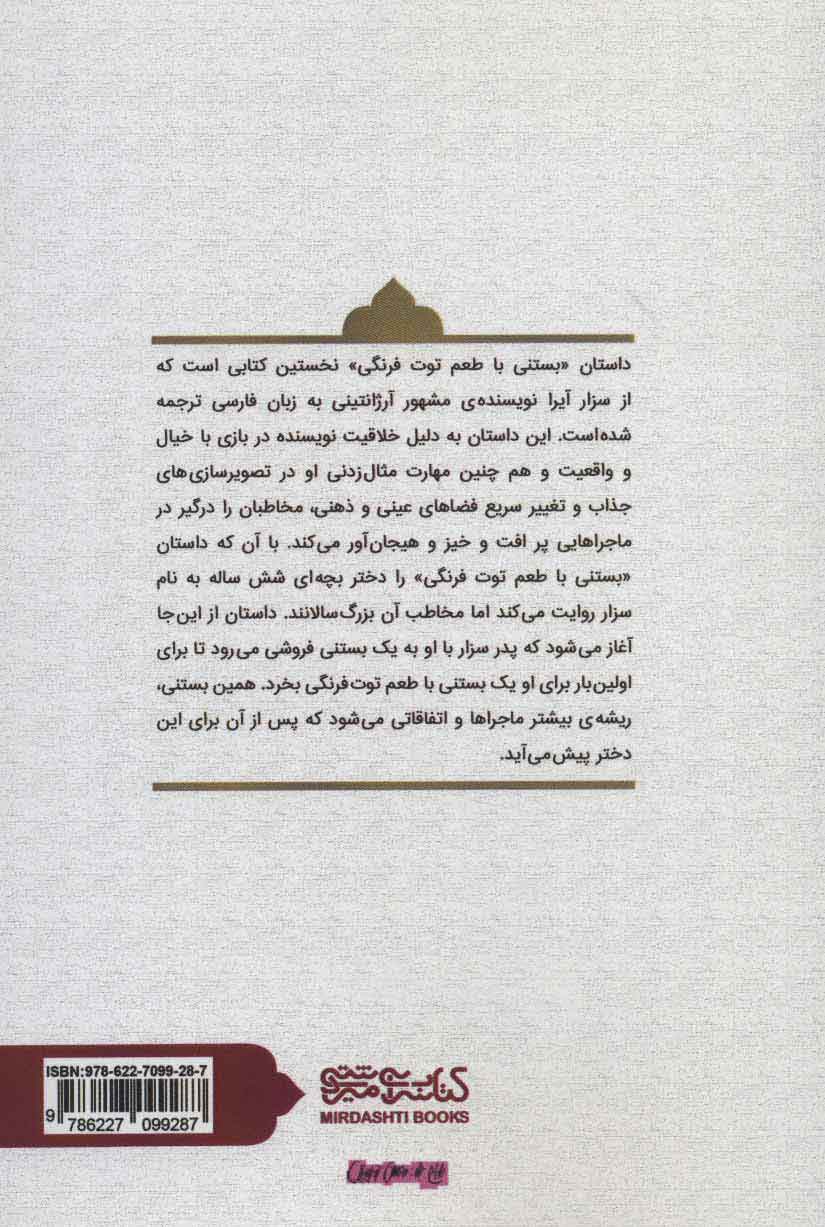 داستان «بستنی با طعم توت فرنگی» نخستین کتابی است که
از سزار آیرا نویسنده‌ی مشهور آرژانتینی به زبان فارسی ترجمه
شده‌است. این داستان به دلیل خلاقیت نویسنده در بازی با خیال
و واقعیت و هم چنین مهارت مثال‌زدنی او در تصویرسازی‌های
جذاب و تغییر سریع فضاهای عینی و ذهنی، مخاطبان را درگیر در
ماجراهایی پر افت و خیز و هیجان‌آور می‌کند. با آن که داستان
«بستنی با طعم توت فرنگی» را دختر بچه‌ای شش ساله به نام
سزار روایت می‌کند اما مخاطب آن بزرگ‌سالانند. داستان از این‌جا
آغاز می‌شود که پدر سزار با او به یک بستنی فروشی می‌رود تا برای
اولین‌بار برای او یک بستنی با طعم توت‌فرنگی بخرد. همین بستنی،
ریشه‌ی بیشتر ماجراها و اتفاقاتی می‌شود که پس از آن برای این
دختر پیش‌می‌آید.
ISBN:978-622-7099-28-7
9 786227 099287
کتابسرای میردشتی
MIRDASHTI BOOKS